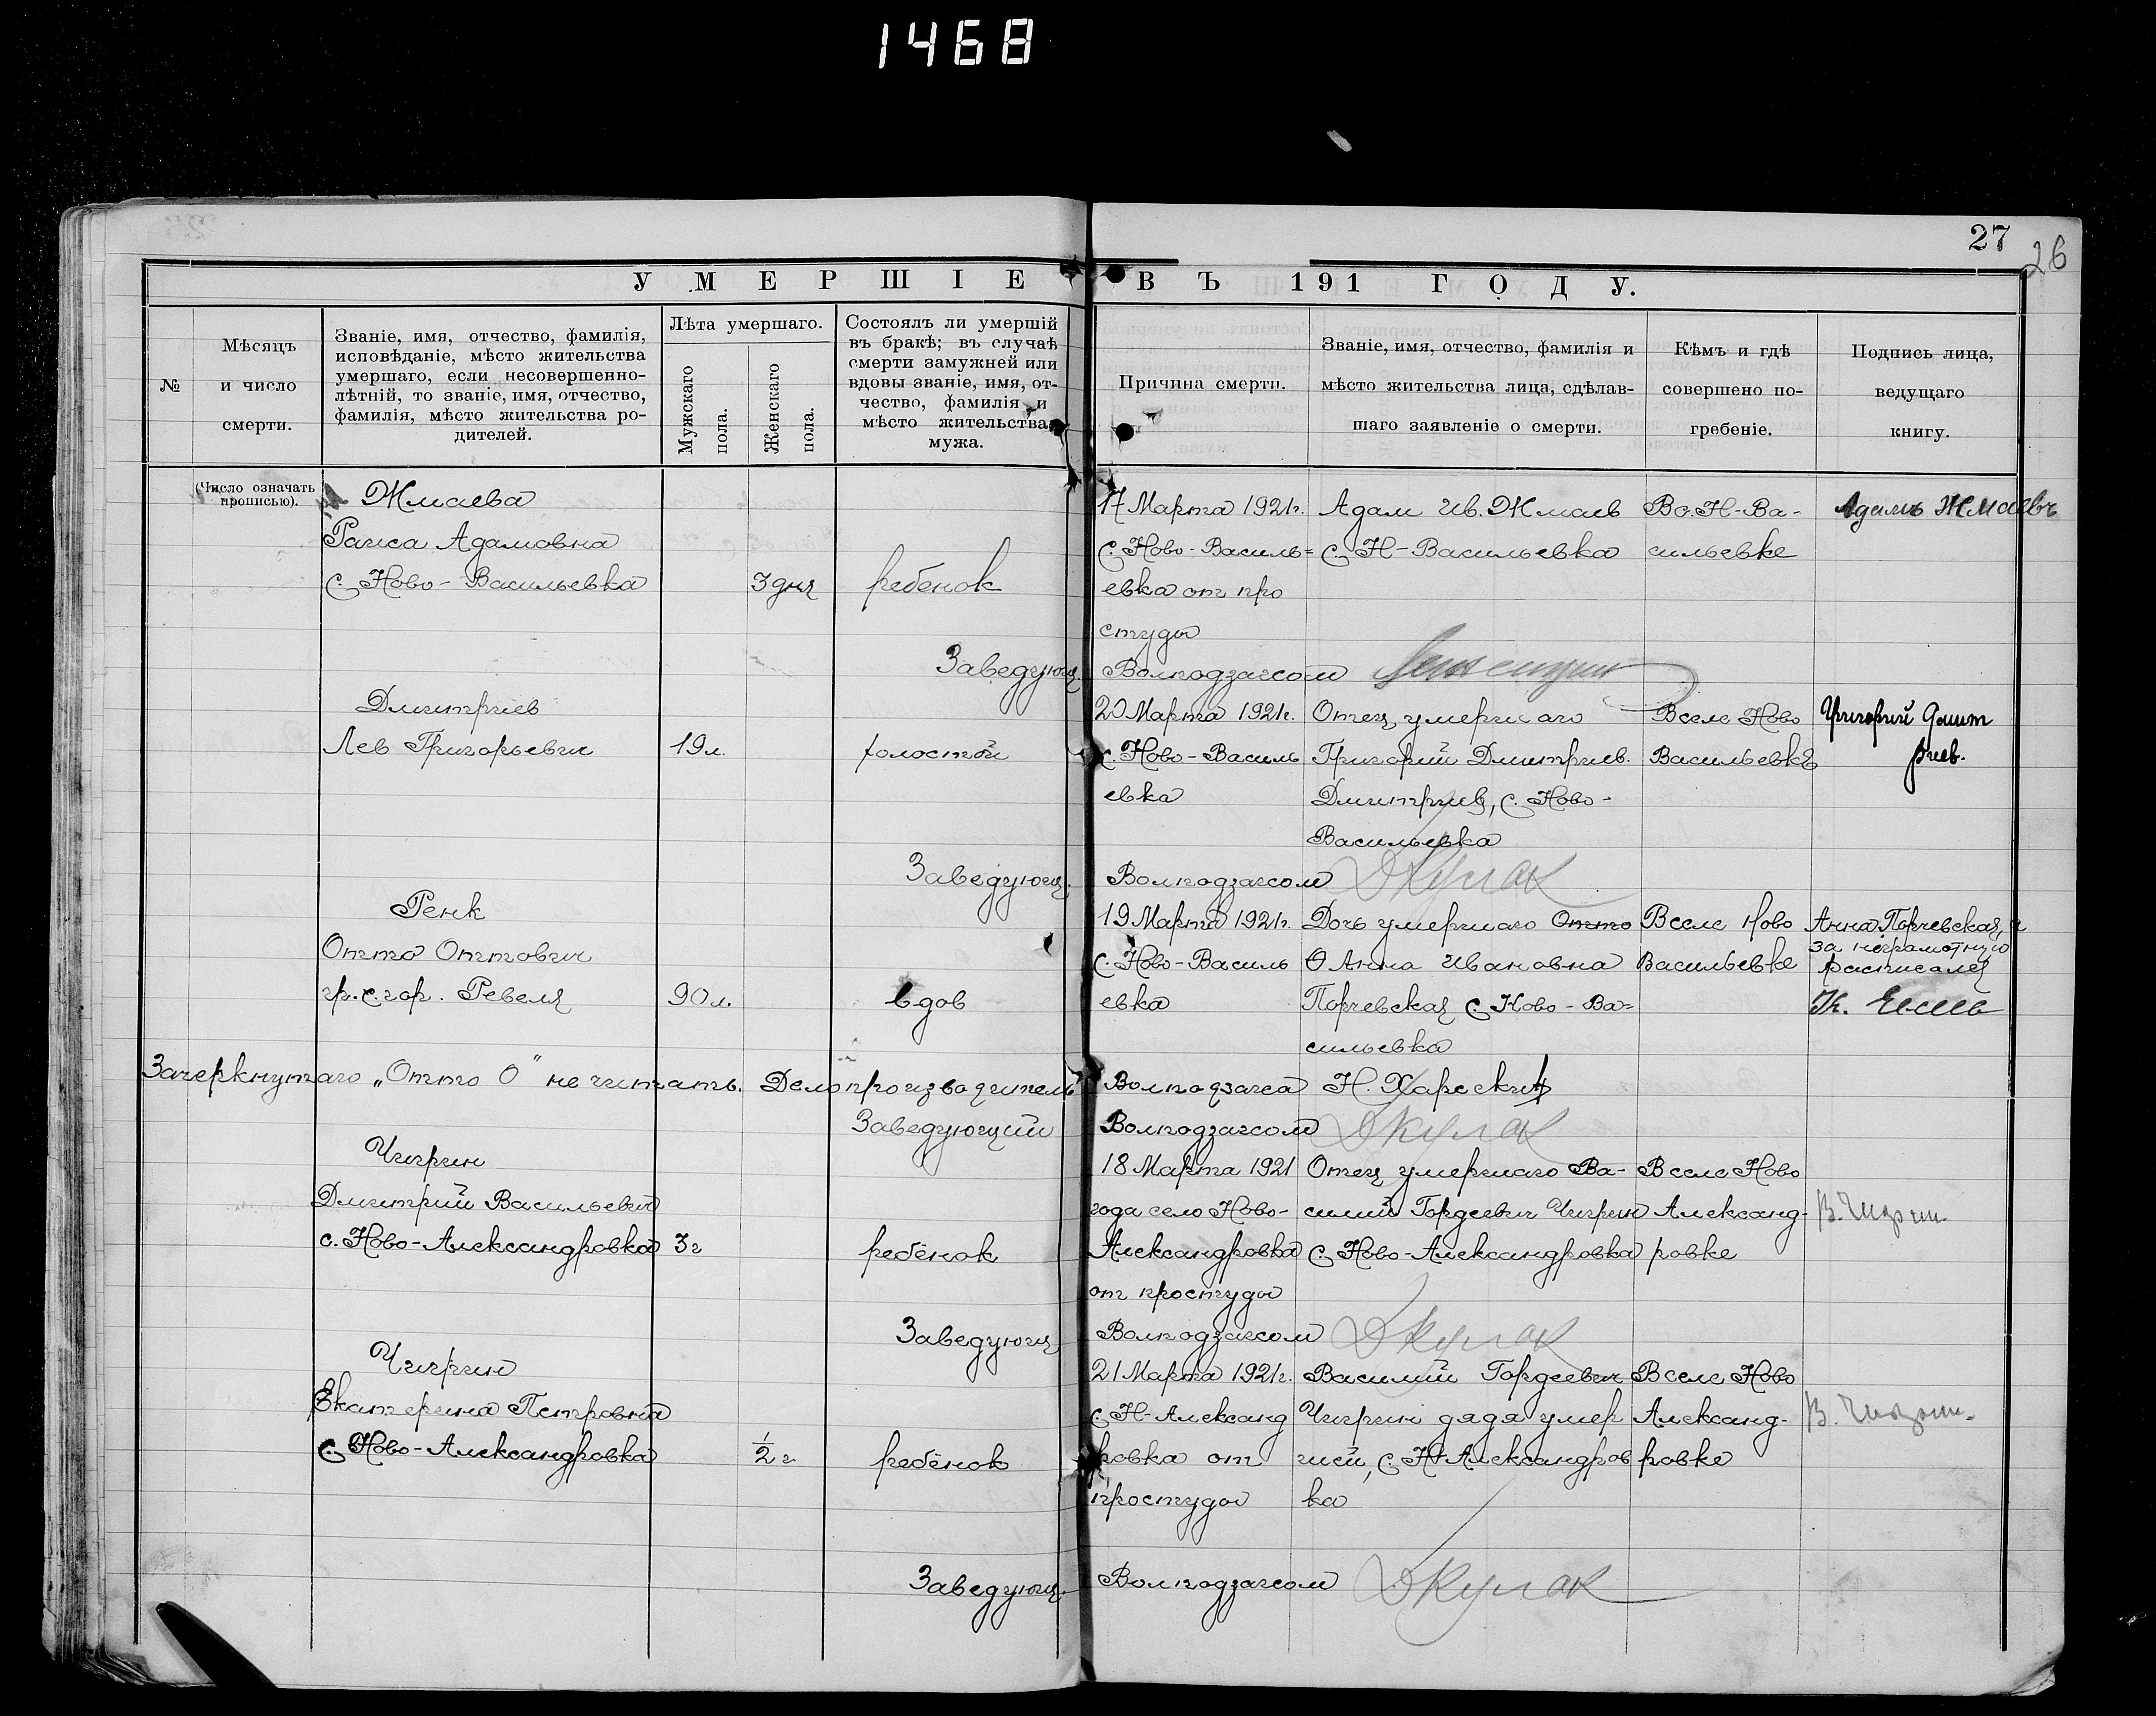 1468
27
26
УМЕРШІЕ ВЪ 191 ГОДУ.
№
Мѣсяцъ
и число
смерти.
Званіе, имя, отчество, фамилія,
исповѣданіе, мѣсто жительства
умершаго, если несовершенно-
лѣтній, то званіе, имя, отчество,
фамилія, мѣсто жительства ро-
дителей.
Лѣта умершаго.
Мужскаго
пола.
Женскаго
пола.
Состоялъ ли умершій
въ бракѣ; въ случаѣ
смерти замужней или
вдовы званіе, имя, от-
чество, фамилія и
мѣсто жительства
мужа.
Причина смерти.
Званіе, имя, отчество, фамилія и
мѣсто жительства лица, сдѣлав-
шаго заявленіе о смерти.
Кѣмъ и гдѣ
совершено по-
гребеніе.
Подпись лица,
ведущаго
книгу.
(Число означать
прописью).
Жмаева
Раиса Адамовна
с. Ново-Васильевка
3 дня
ребенок
17 Марта 1921г.
с. Ново-Василь=
евка от про
студы
Адам Ив. Жмаев
с. Н-Васильевка
Вс. Н-Ва-
сильевке
Адамъ Жмаевъ
Заведующ. Волподзагсом
Дмитриев
Лев Григорьевич
19 л.
холостой
20 Марта 1921г.
с. Ново-Василь
евка
Отец умершаго
Григорий Дмитриев.
Дмитриев, с. Ново-
Васильевка
В селе Ново
Васильевкѣ
Григорий Дмит
риев.
Заведующ. Волподзагсом Д Кулак
Ренк
Отто Оттович
гр. с. гор. Ревеля
90 л.
вдов
19 Марта 1921г.
с. Ново-Василь
евка
Дочь умершаго Отто
О Анна Ивановна
Порчевская с. Ново-Ва=
сильевка
В селе Ново
Васильевке
Анна Порчевская, а
за неграмотную
расписался
Зачеркнутаго „Отто О" не читать. Делопроизводитель Волподзагса Н. Харский
Заведующий Волподзагсом Д Кулак
Чигрин
Дмитрий Васильевич
с. Ново-Александровка
3 г
ребёнок
18 Марта 1921
года село Ново-
Александровка
от простуды
Отец умершаго Ва-
силий Гордеевич Чигрин
с. Ново-Александровка
В селе Ново
Александ-
ровке
В. Чигрин.
Заведующ Волподзагсом Д Кулак
Чигрин
Екатерина Петровна
с. Ново-Александровка
1/2 г
ребёнок
21 Марта 1921г.
с. Н-Александ
ровка от
простуды
Василий Гордеевич
Чигрин дядя умер
шей, с. Н-Александров
ка
В селе Ново
Александ-
ровке
В. Чигрин.
Заведующ. Волподзагсом Д Кулак